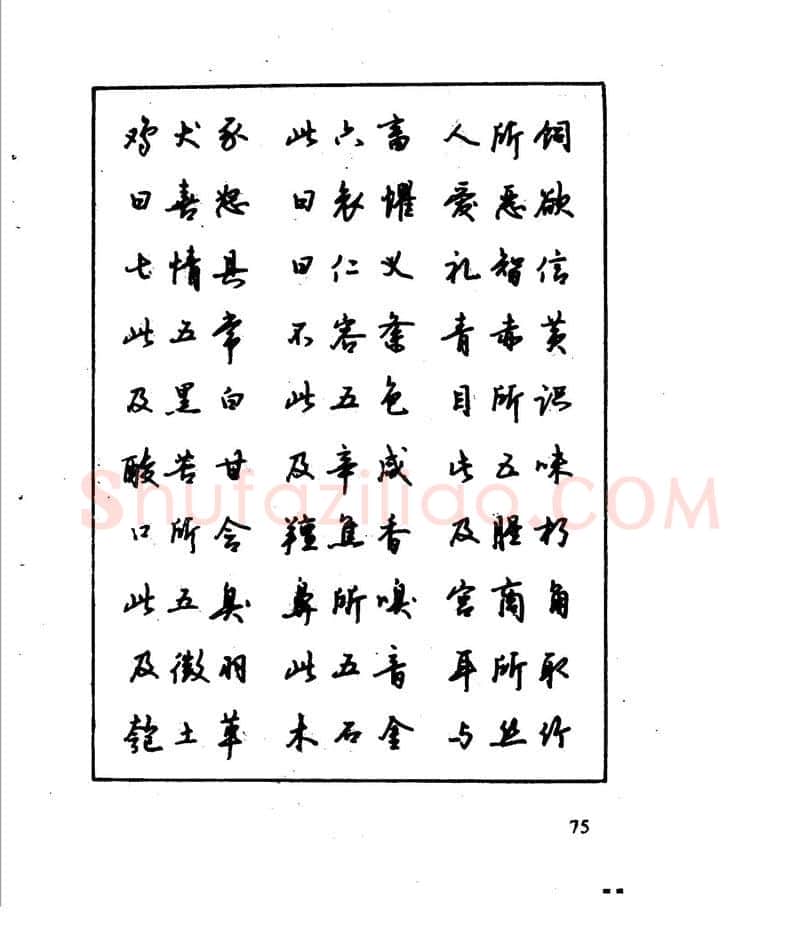 鸡犬豕 此六畜 人所饲
曰喜怒 曰哀懼 爱恶欲
七情具 曰仁义 礼智信
此五常 不容紊 青赤黄
及黑白 此五色 目所识
酸苦甘 及辛咸 此五味
口所含 羶焦香 及腥朽
此五臭 鼻所嗅 宫商角
及徵羽 此五音 耳所取
匏土革 木石金 与丝竹
75
Shufaziliao.COM